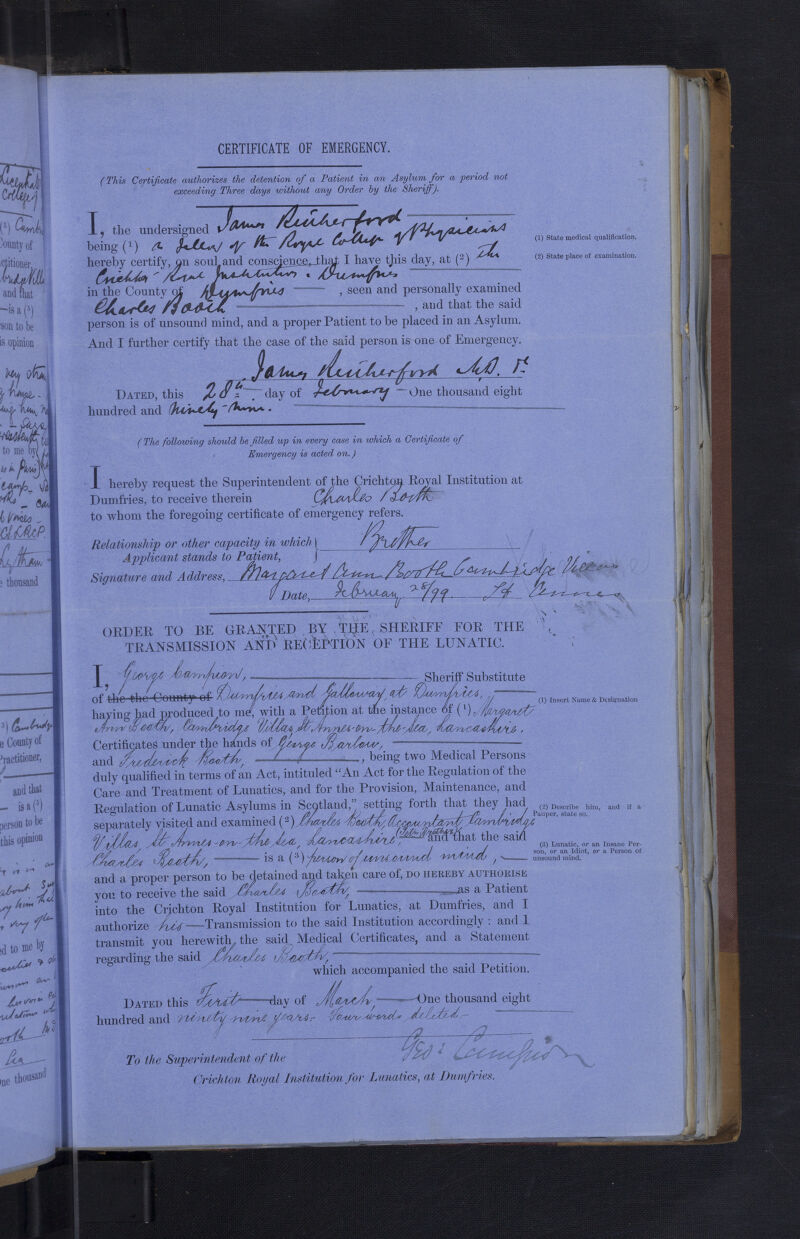 CERTIFICATE OF EMERGENCY.
(This Certificate authorizes the detention of a Patient in an Asylum for a period not
exceeding Three days without any Order by the Sheriff).
I, the undersigned James Rutherford
being (1) a Fellow of the Royal College of Physicians
hereby certify, on soul and conscience, that I have this day, at (2) the
Crichton Royal Institution, Dumfries
in the County of Dumfries , seen and personally examined
Charles Booth , and that the said
person is of unsound mind, and a proper Patient to be placed in an Asylum.
And I further certify that the case of the said person is one of Emergency.
(1) State medical qualification.
(2) State place of examination.
James Rutherford M.D.
DATED, this 28th day of February One thousand eight
hundred and ninety-nine.
(The following should be filled up in every case in which a Certificate of
Emergency is acted on.)
I hereby request the Superintendent of the Crichton Royal Institution at
Dumfries, to receive therein Charles Booth
to whom the foregoing certificate of emergency refers.
Relationship or other capacity in which } Brother
Applicant stands to Patient,
Signature and Address, Margaret Ann Booth Cambridge
Date, February 28/99. St Annes
ORDER TO BE GRANTED BY THE SHERIFF FOR THE
TRANSMISSION AND RECEPTION OF THE LUNATIC.
I, George Campion, Sheriff Substitute
of the the County of Dumfries and Galloway at Dumfries,
having had produced to me, with a Petition at the instance of (1) Margaret
Ann Booth, Cambridge Villas, St. Annes-on-the-Sea, Lancashire,
Certificates under the hands of George Barlow,
and Frederick Booth, , being two Medical Persons
duly qualified in terms of an Act, intituled "An Act for the Regulation of the
Care and Treatment of Lunatics, and for the Provision, Maintenance, and
Regulation of Lunatic Asylums in Scotland," setting forth that they had
separately visited and examined (2) Charles Booth, Accountant, Cambridge
Villas, St. Annes-on-the-Sea, Lancashire, and that the said
Charles Booth, is a (3) person of unsound mind,
and a proper person to be detained and taken care of, DO HEREBY AUTHORISE
you to receive the said Charles Booth, as a Patient
into the Crichton Royal Institution for Lunatics, at Dumfries, and I
authorize his Transmission to the said Institution accordingly: and I
transmit you herewith, the said Medical Certificates, and a Statement
regarding the said Charles Booth,
which accompanied the said Petition.
(1) Insert Name & Designation
(2) Describe him, and if a
Pauper, state so.
(3) Lunatic, or an Insane Per-
son, or an Idiot, or a Person of
unsound mind.
DATED this First day of March, One thousand eight
hundred and ninety nine years. Four words deleted.
Geo: Campion
To the Superintendent of the
Crichton Royal Institution for Lunatics, at Dumfries.